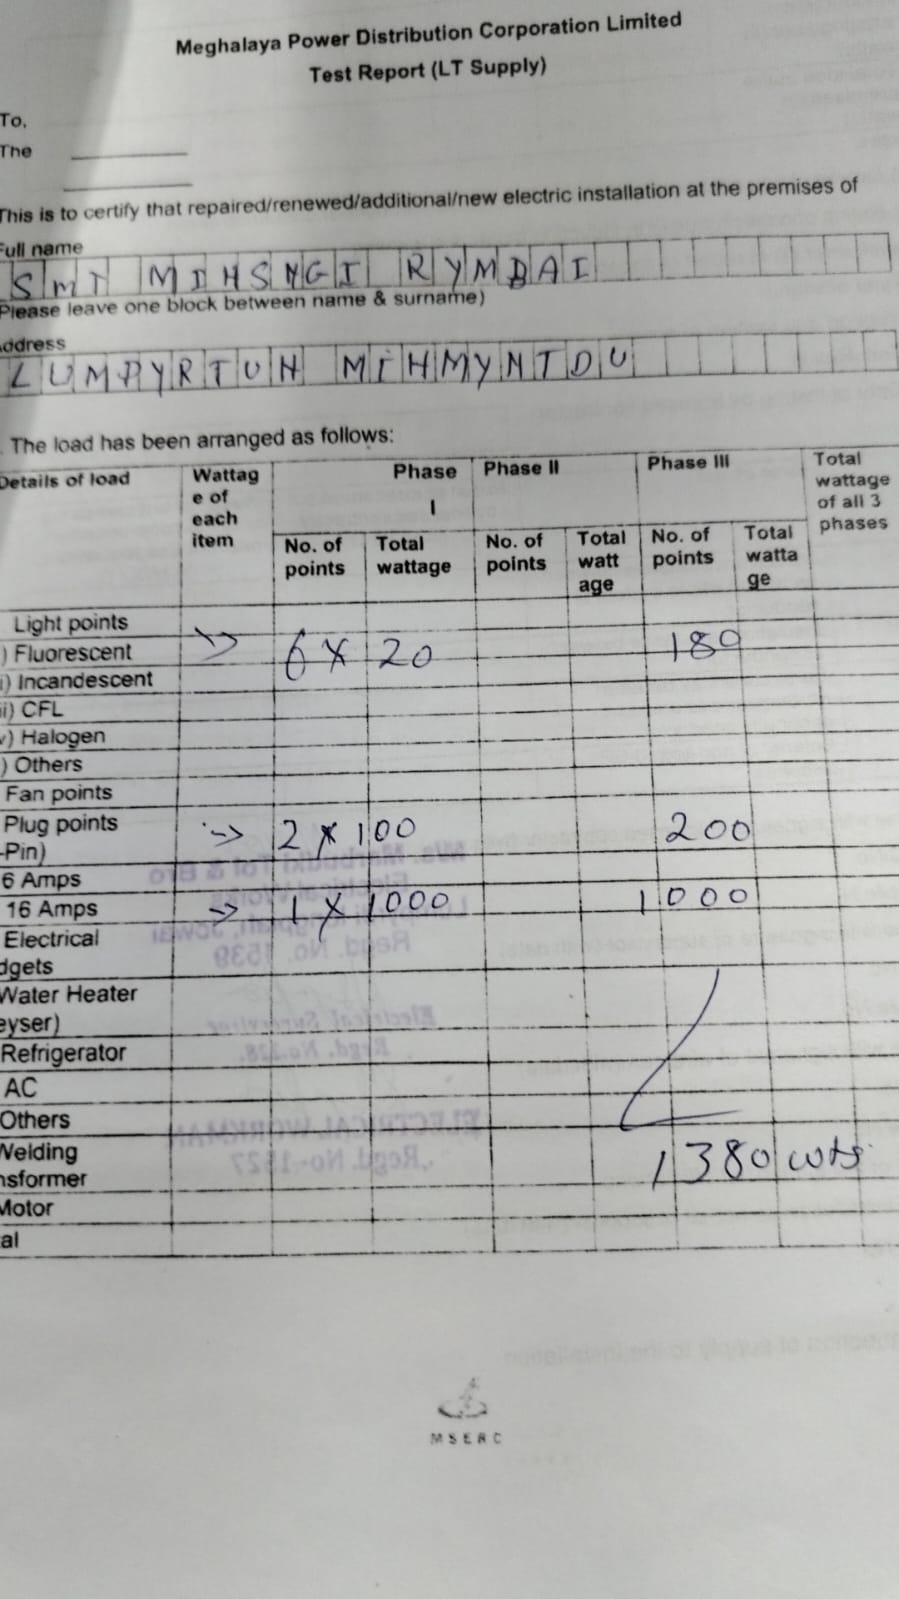 Meghalaya Power Distribution Corporation Limited
Test Report (LT Supply)
To,
The
This is to certify that repaired/renewed/additional/new electric installation at the premises of
Full name
SMT MIHSNGI RYMBAI
Please leave one block between name & surname)
Address
LUMPYRTUH MIHMYNTDU
. The load has been arranged as follows:
Details of load Wattag e of each item Phase I Phase II Phase III Total wattage of all 3 phases
No. of points Total wattage No. of points Total watt age No. of points Total watta ge
Light points
) Fluorescent 6 x 20 180
i) Incandescent
ii) CFL
v) Halogen
) Others
Fan points
Plug points 2 x 100 200
-Pin)
6 Amps
16 Amps 1 x 1000 1000
Electrical
dgets
Water Heater
eyser)
Refrigerator
AC
Others
Welding 1380 wts
nsformer
Motor
al
MSERC